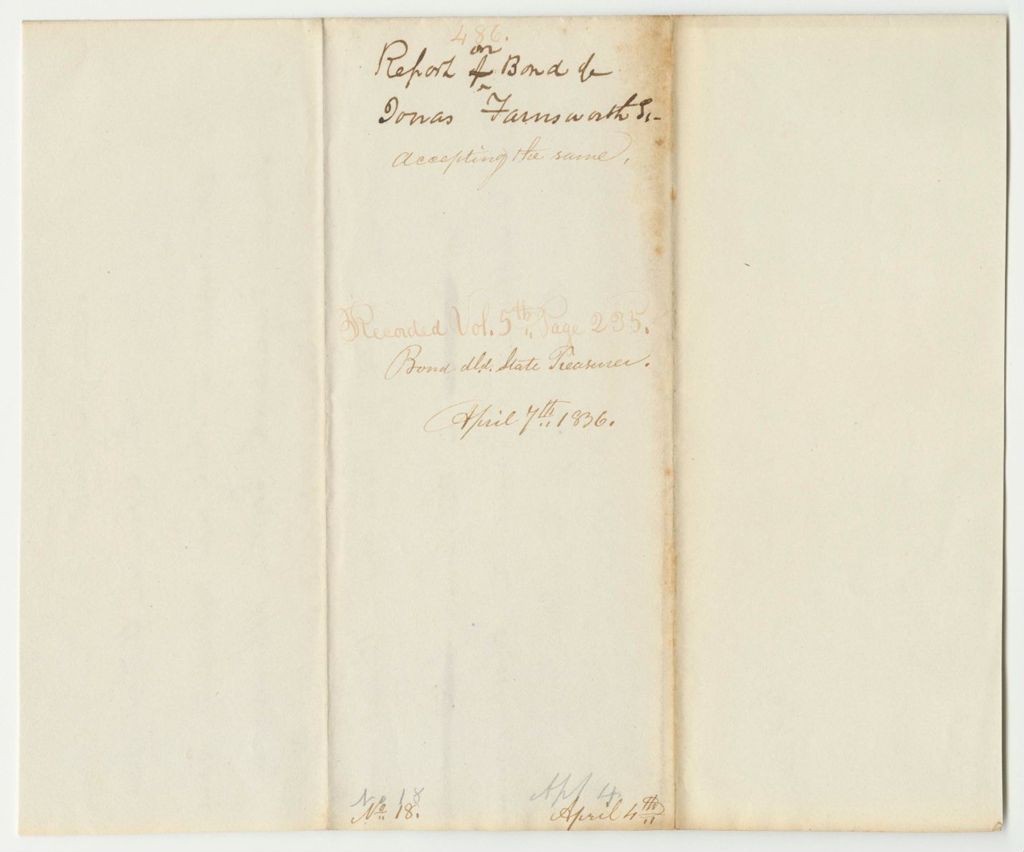 486.
on
Report of Bond of
Jonas Farnsworth Jr
accepting the same,
Recorded Vol. 5th Page 235.
Bond dld. State Treasurer.
April 7th 1836.
No 18 Apl 4.
No 18. April 4th